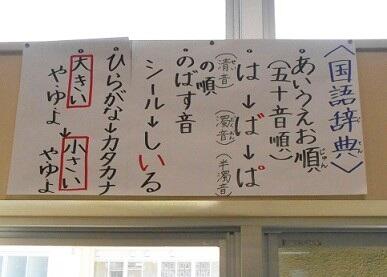 〈国語辞典〉
・あいうえお順
（五十音順）
・は→ば→ぱ
（清音）（濁音）（半濁音）
の順
・のばす音
シール→しいる
・ひらがな→カタカナ
・大きい→小さい
や・ゆ・よ　や・ゆ・よ